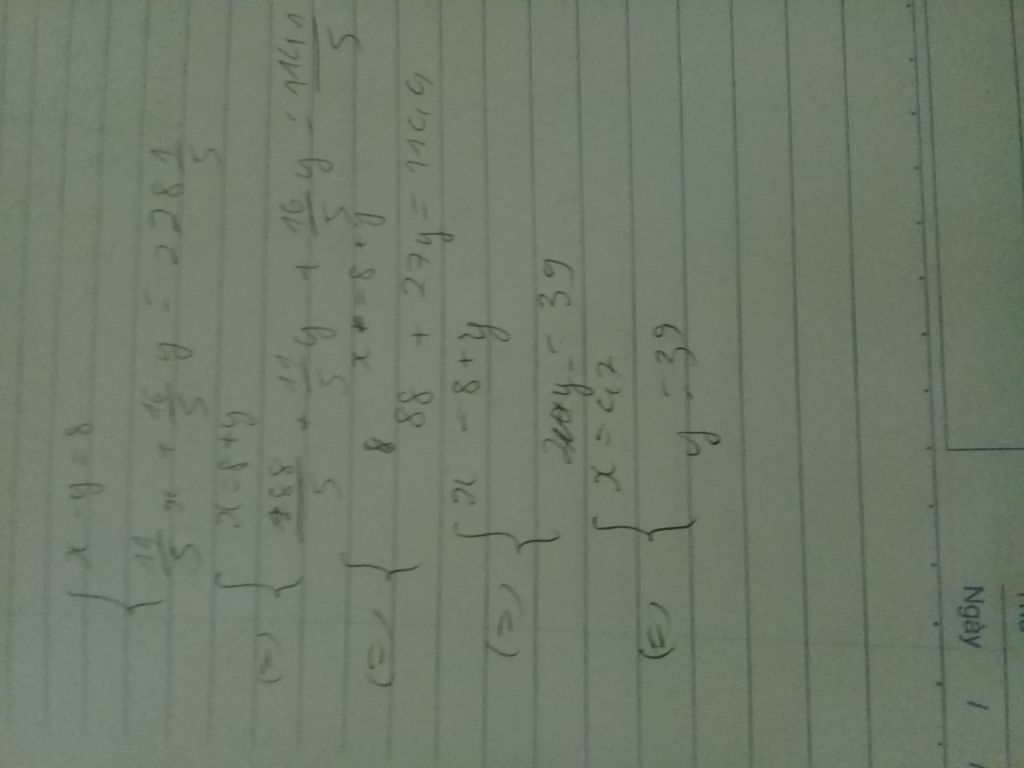 { x - y = 8
11/5 x + 16/5 y = 228 1/5
(=) { x = 8 + y
88/5 + 11/5 y + 16/5 y = 1141/5
(=) { x = 8 + y
88 + 27y = 1141
(=) { x = 8 + y
y = 39
(=) { x = 47
y = 39
Ngày / /